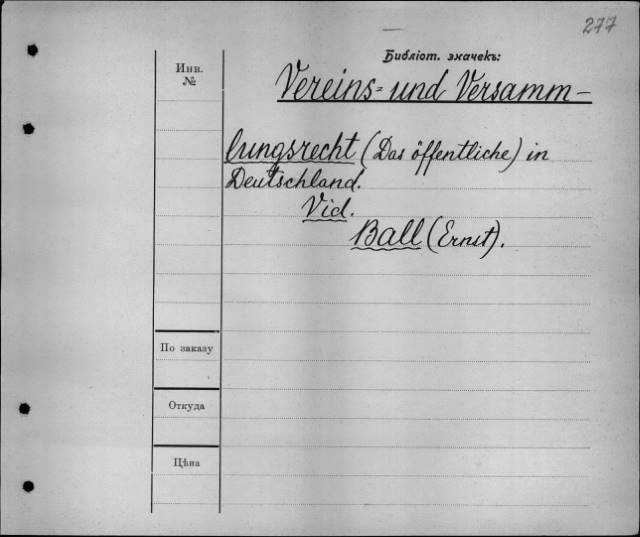 277
Библіот. значекъ:
Инв.
№
Vereins= und Versamm-
lungsrecht (Das öffentliche) in
Deutschland.
Vid.
Ball (Ernst).
По заказу
Откуда
Цѣна